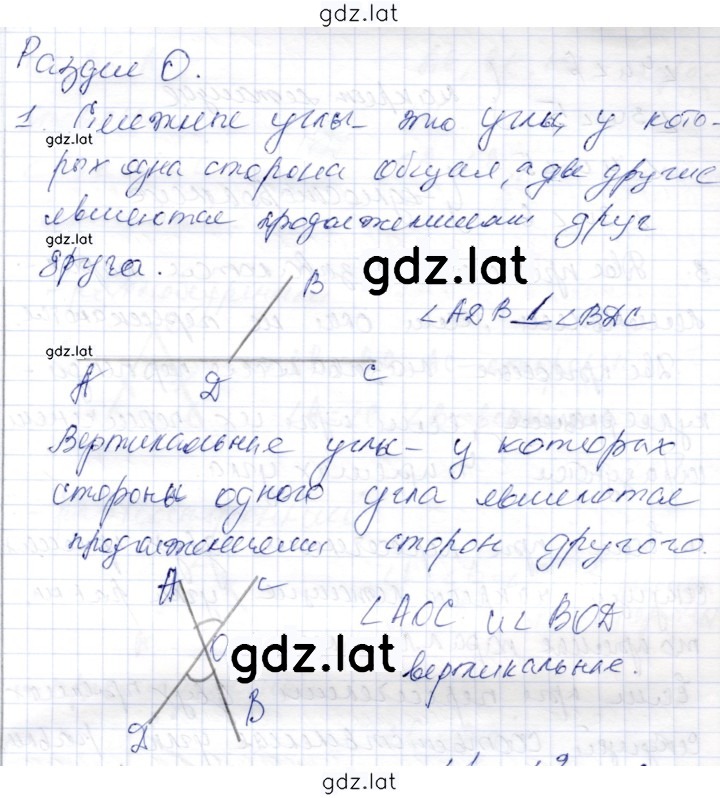 gdz.lat
Раздел 0.
1. Смежные углы - это углы, у кото-
gdz.lat
рых одна сторона общая, а две другие
являются продолжениями друг
gdz.lat
друга.
gdz.lat
B
∠ADB ⊥ ∠BDC
gdz.lat
A D C
Вертикальные углы - у которых
стороны одного угла являются
продолжениями сторон другого.
A C
∠AOC и ∠BOD
O
gdz.lat
вертикальные.
B
D
gdz.lat